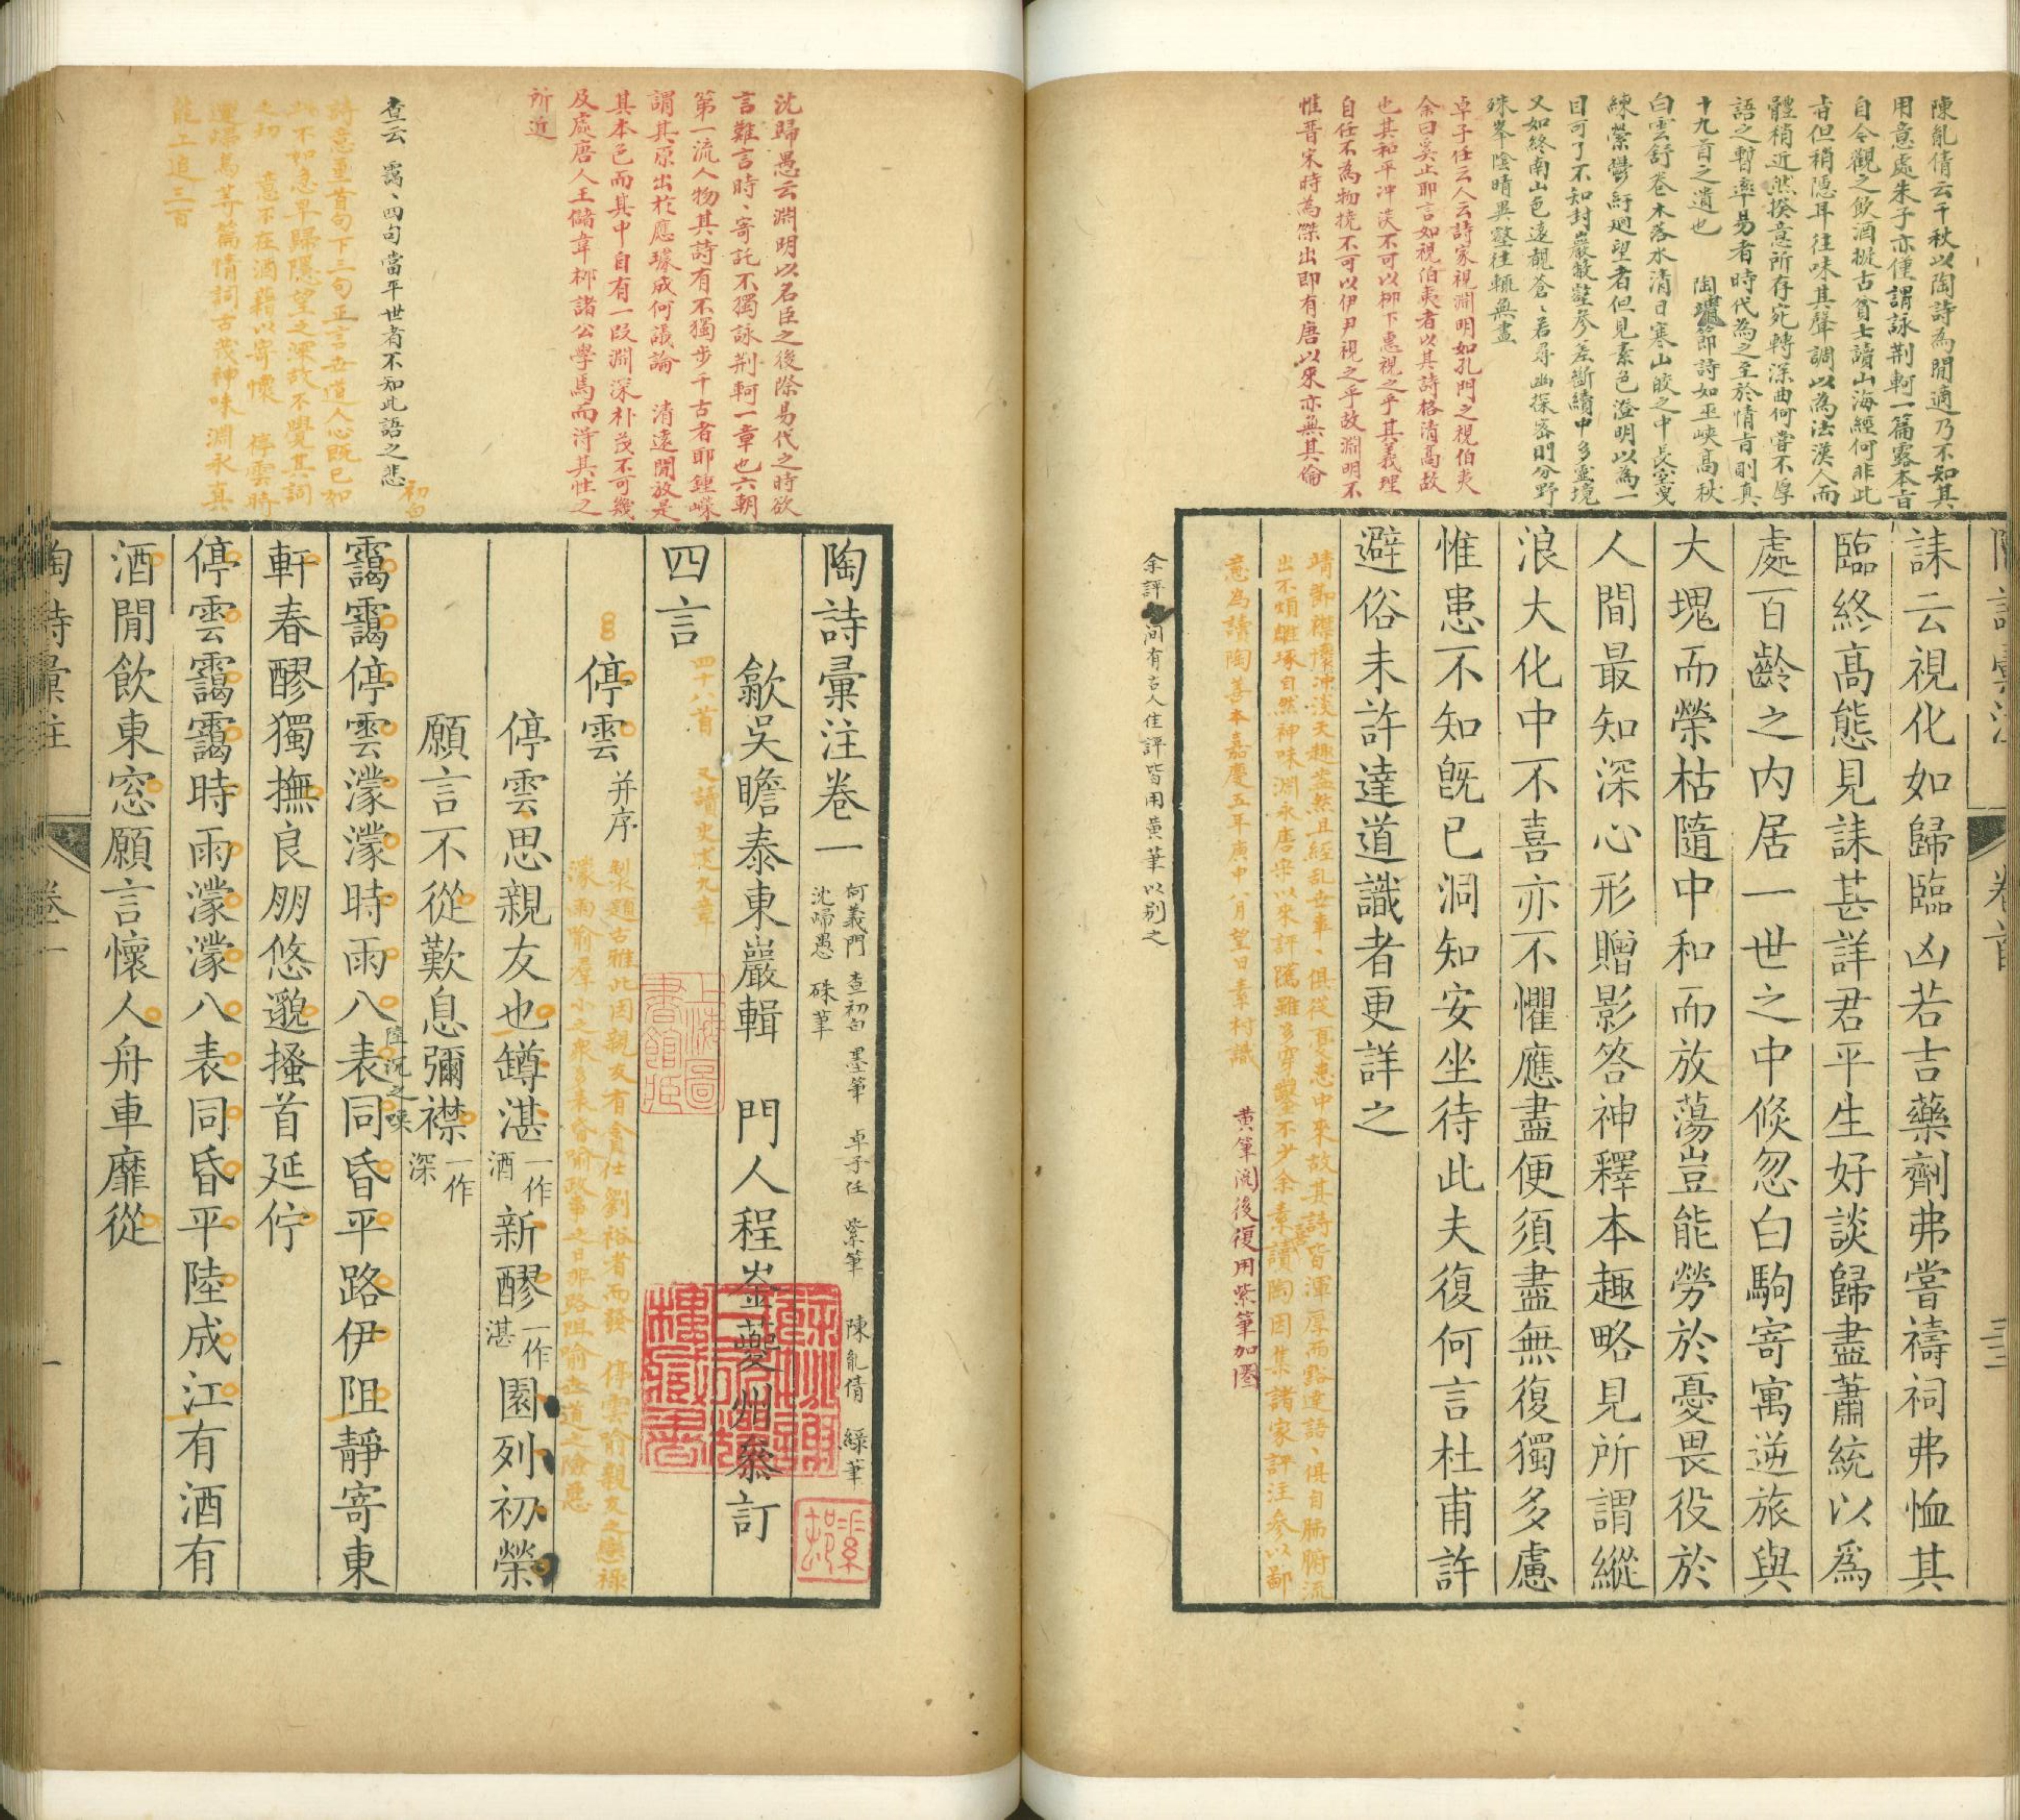 陳胤倩云千秋以陶詩為閒適乃不知其
用意處朱子亦僅謂詠荆軻一篇露本旨
自今觀之飲酒擬古貧士讀山海經何非此
旨但稍隱耳往味其聲調以為法漢人而
體稍近然揆意所存宛轉深曲何嘗不厚
語之暫率易者時代為之至於情旨則真
十九首之遺也 陶靖節詩如巫峽高秋
白雲舒卷木落水清日寒山皎之中長空曳
練縈鬱紆迴望者但見素色澄明以為一
目可了不知封巖蔽壑參差斷續中多靈境
又如終南山色遠覩蒼〻若尋幽探密則分野
殊峯陰晴異壑往輒無盡
卓子任云人云詩家視淵明如孔門之視伯夷
余曰奚止耶言如視伯夷者以其詩格清高故
也其和平冲淡不可以柳下惠視之乎其義理
自任不為物撓不可以伊尹視之乎故淵明不
惟晉宋時為傑出即有唐以來亦無其倫
卷首
誄云視化如歸臨凶若吉藥劑弗嘗禱祠弗恤其
臨終高態見誄甚詳君平生好談歸盡蕭統以爲
處百齡之内居一世之中倏忽白駒寄寓逆旅與
大塊而榮枯隨中和而放蕩豈能勞於憂畏役於
人間最知深心形贈影答神釋本趣略見所謂縱
浪大化中不喜亦不懼應盡便須盡無復獨多慮
惟患不知旣已洞知安坐待此夫復何言杜甫許
避俗未許達道識者更詳之
靖節襟懷冲淡天趣盎然且經亂世事〻俱從憂患中來故其詩皆渾厚而豁達語〻俱自肺腑流
出不煩雕琢自然神味淵永唐宋以來評騭雖多穿鑿不少余素喜讀陶因集諸家評注參以鄙
意為讀陶善本嘉慶五年庚申八月望日素村識 黄筆流後復用紫筆加圈
余評間有古人佳評皆用黄筆以别之
沈歸愚云淵明以名臣之後際易代之時欲
言難言時〻寄託不獨詠荆軻一章也六朝
第一流人物其詩有不獨步千古者耶鍾嶸
謂其原出於應璩成何議論 清遠閒放是
其本色而其中自有一段淵深朴茂不可幾
及處唐人王儲韋柳諸公學焉而淂其性之
所近
查云 靄〻四句當平世者不知此語之悲
初白
詩意重首句下三句正言世道人心既已如
此不如急早歸隱望之深故不覺其詞
之切 意不在酒藉以寄懷 停雲時
運歸鳥等篇情詞古茂神味淵永真
能上追三百
陶詩彙注卷一
何義門 查初白 墨筆 卓子任 紫筆 陳胤倩 綠筆
沈歸愚 硃筆
歙吳瞻泰東巖輯 門人程崟夔州叅訂
四言
四十八首 又讀史述九章
停雲并序
製題古雅此因親友有貪仕劉裕者而發 停雲喻親友之戀祿
濛雨喻羣小之衆多表昏喻政事之日非路阻喻世道之險惡
停雲思親友也罇湛一作酒新醪一作湛園列初榮
願言不從歎息彌襟一作深
靄靄停雲濛濛時雨八表同昏平路伊阻靜寄東
陸沉之嘆
軒春醪獨撫良朋悠邈搔首延佇
停雲靄靄時雨濛濛八表同昏平陸成江有酒有
酒閒飲東窓願言懷人舟車靡從
陶詩彙注
卷一
一
上海圖書館藏